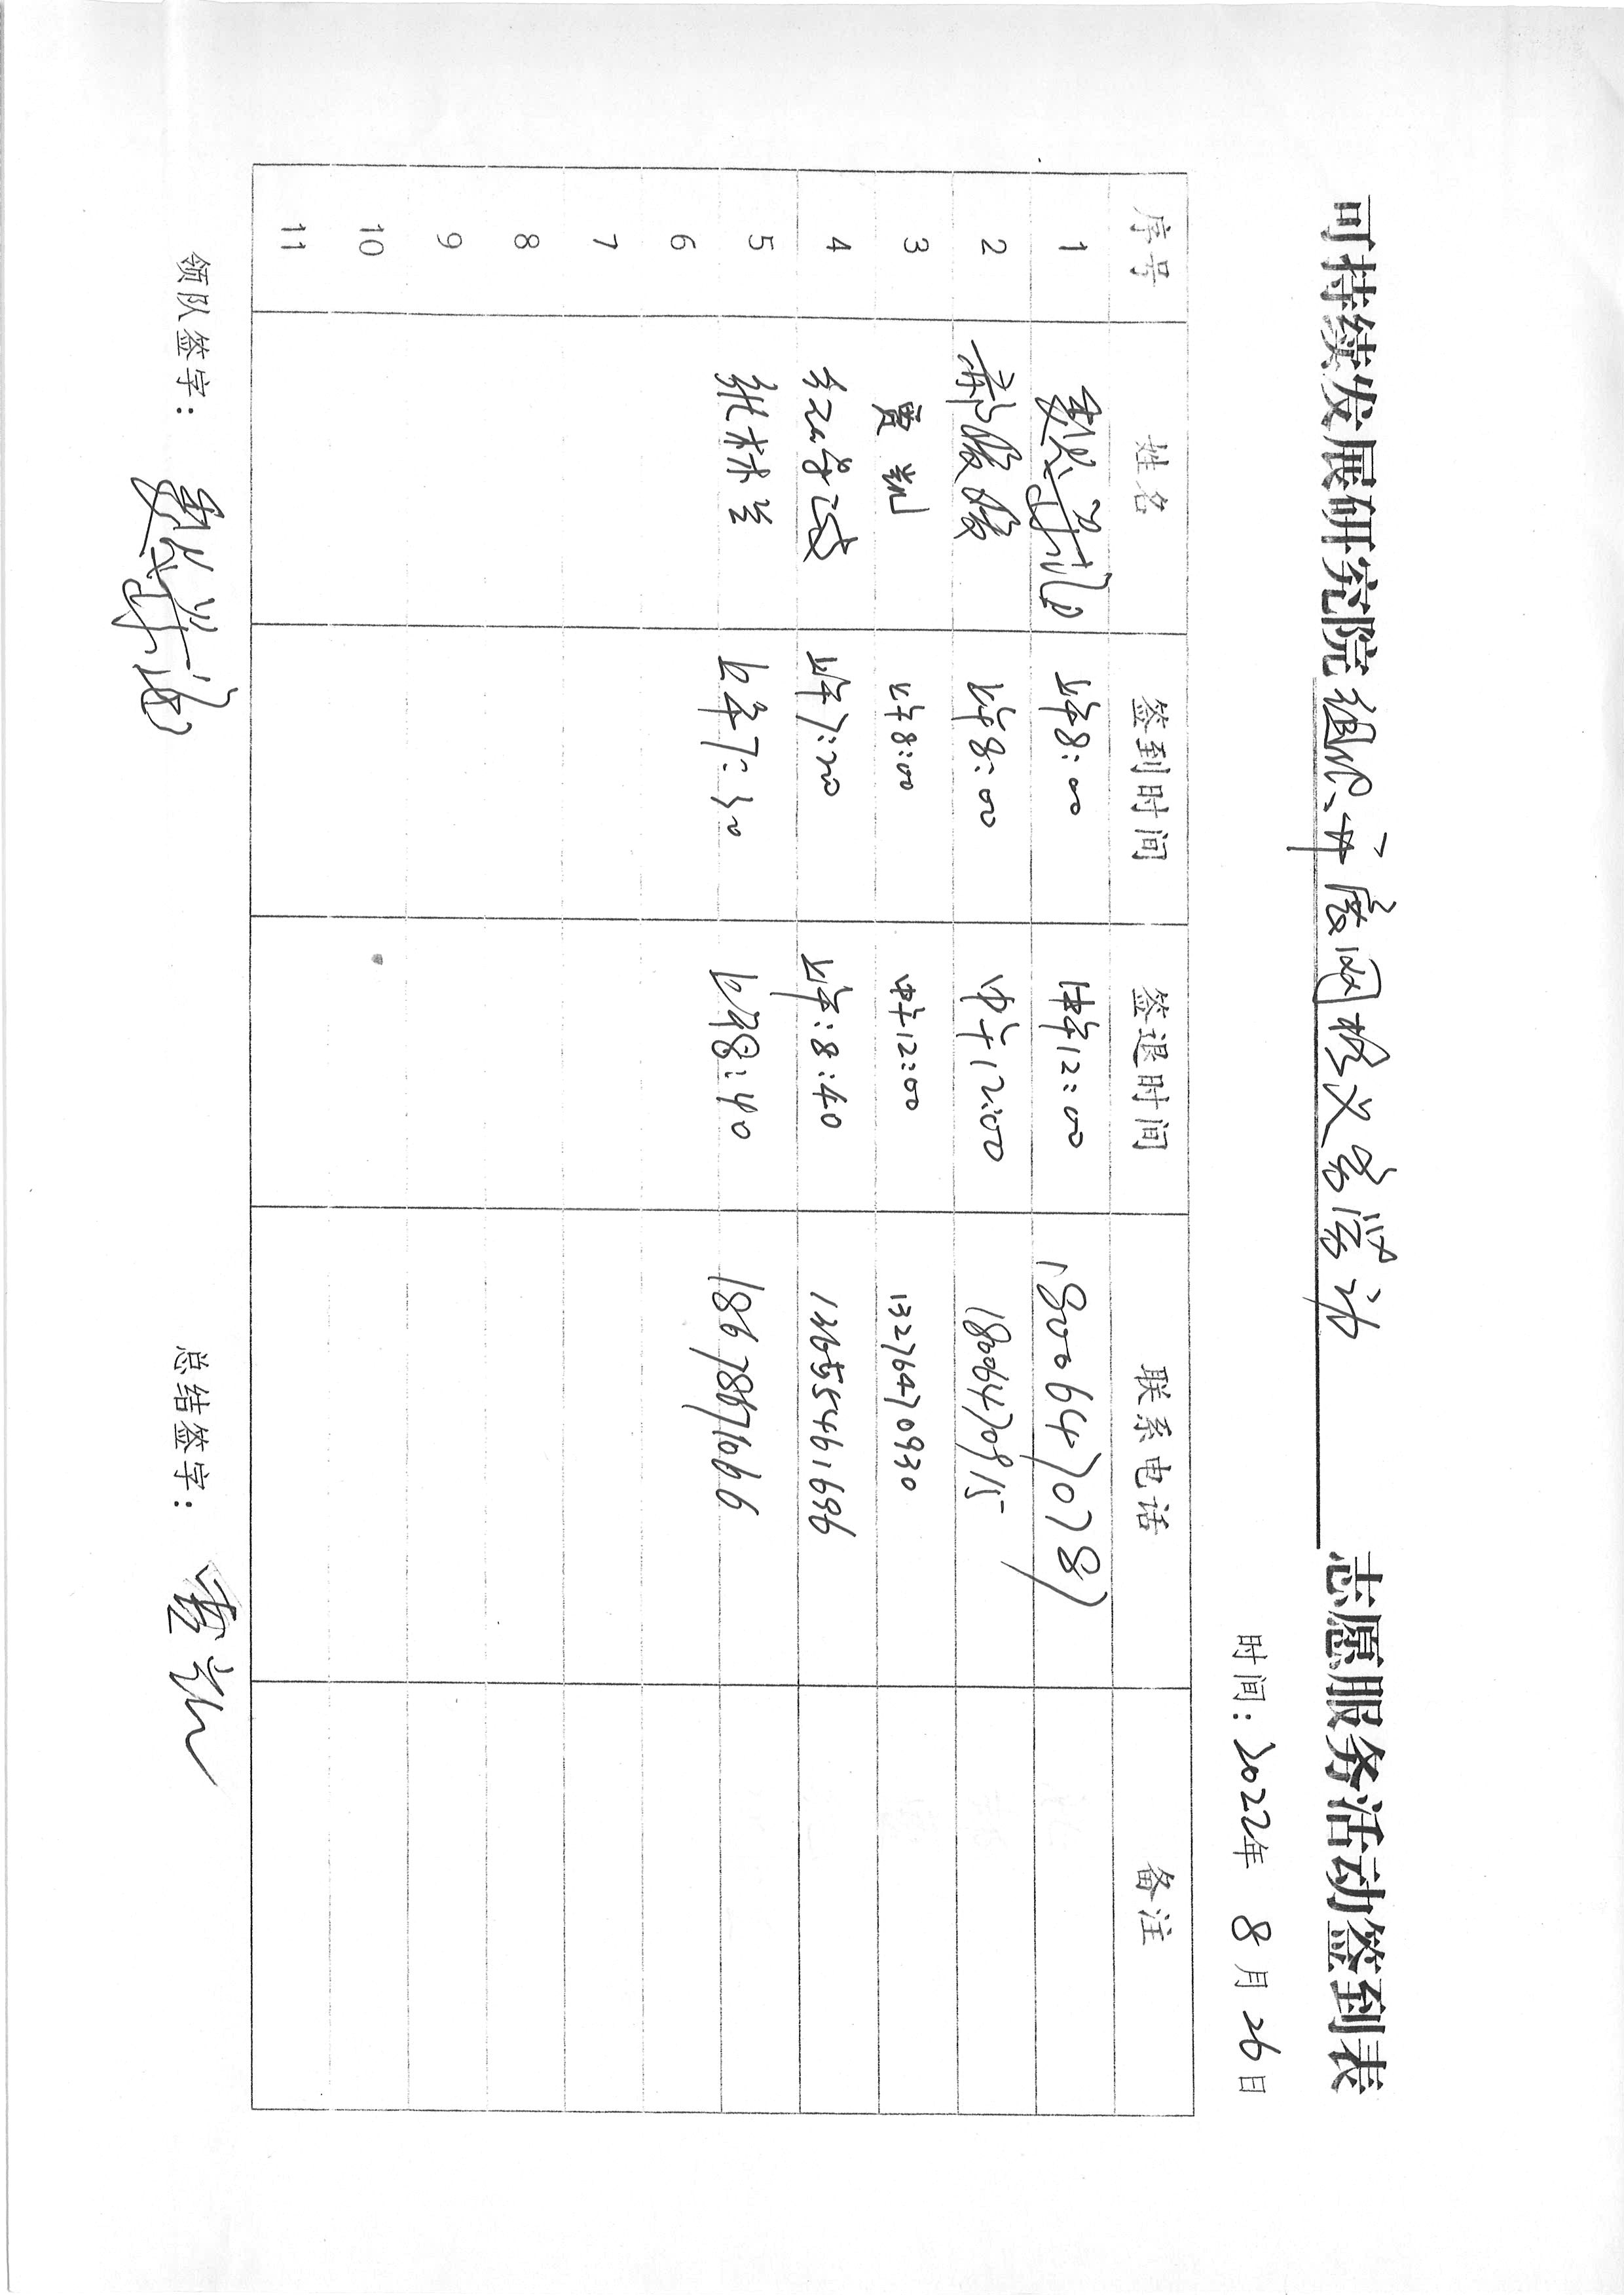 可持续发展研究院组织开展网格义务活动志愿服务活动签到表
时间：2022年 8月26日
序号 姓名 签到时间 签退时间 联系电话 备注
1 上午8:00 中午12:00 18006470787
2 郝媛媛 上午8:00 中午12:00 18006470815
3 贾凯 上午8:00 中午12:00 13276470930
4 上午7:20 上午:8:40 13655461696
5 张林兰 上午7:30 上午8:40 18678671066
6
7
8
9
10
11
领队签字： 总结签字：